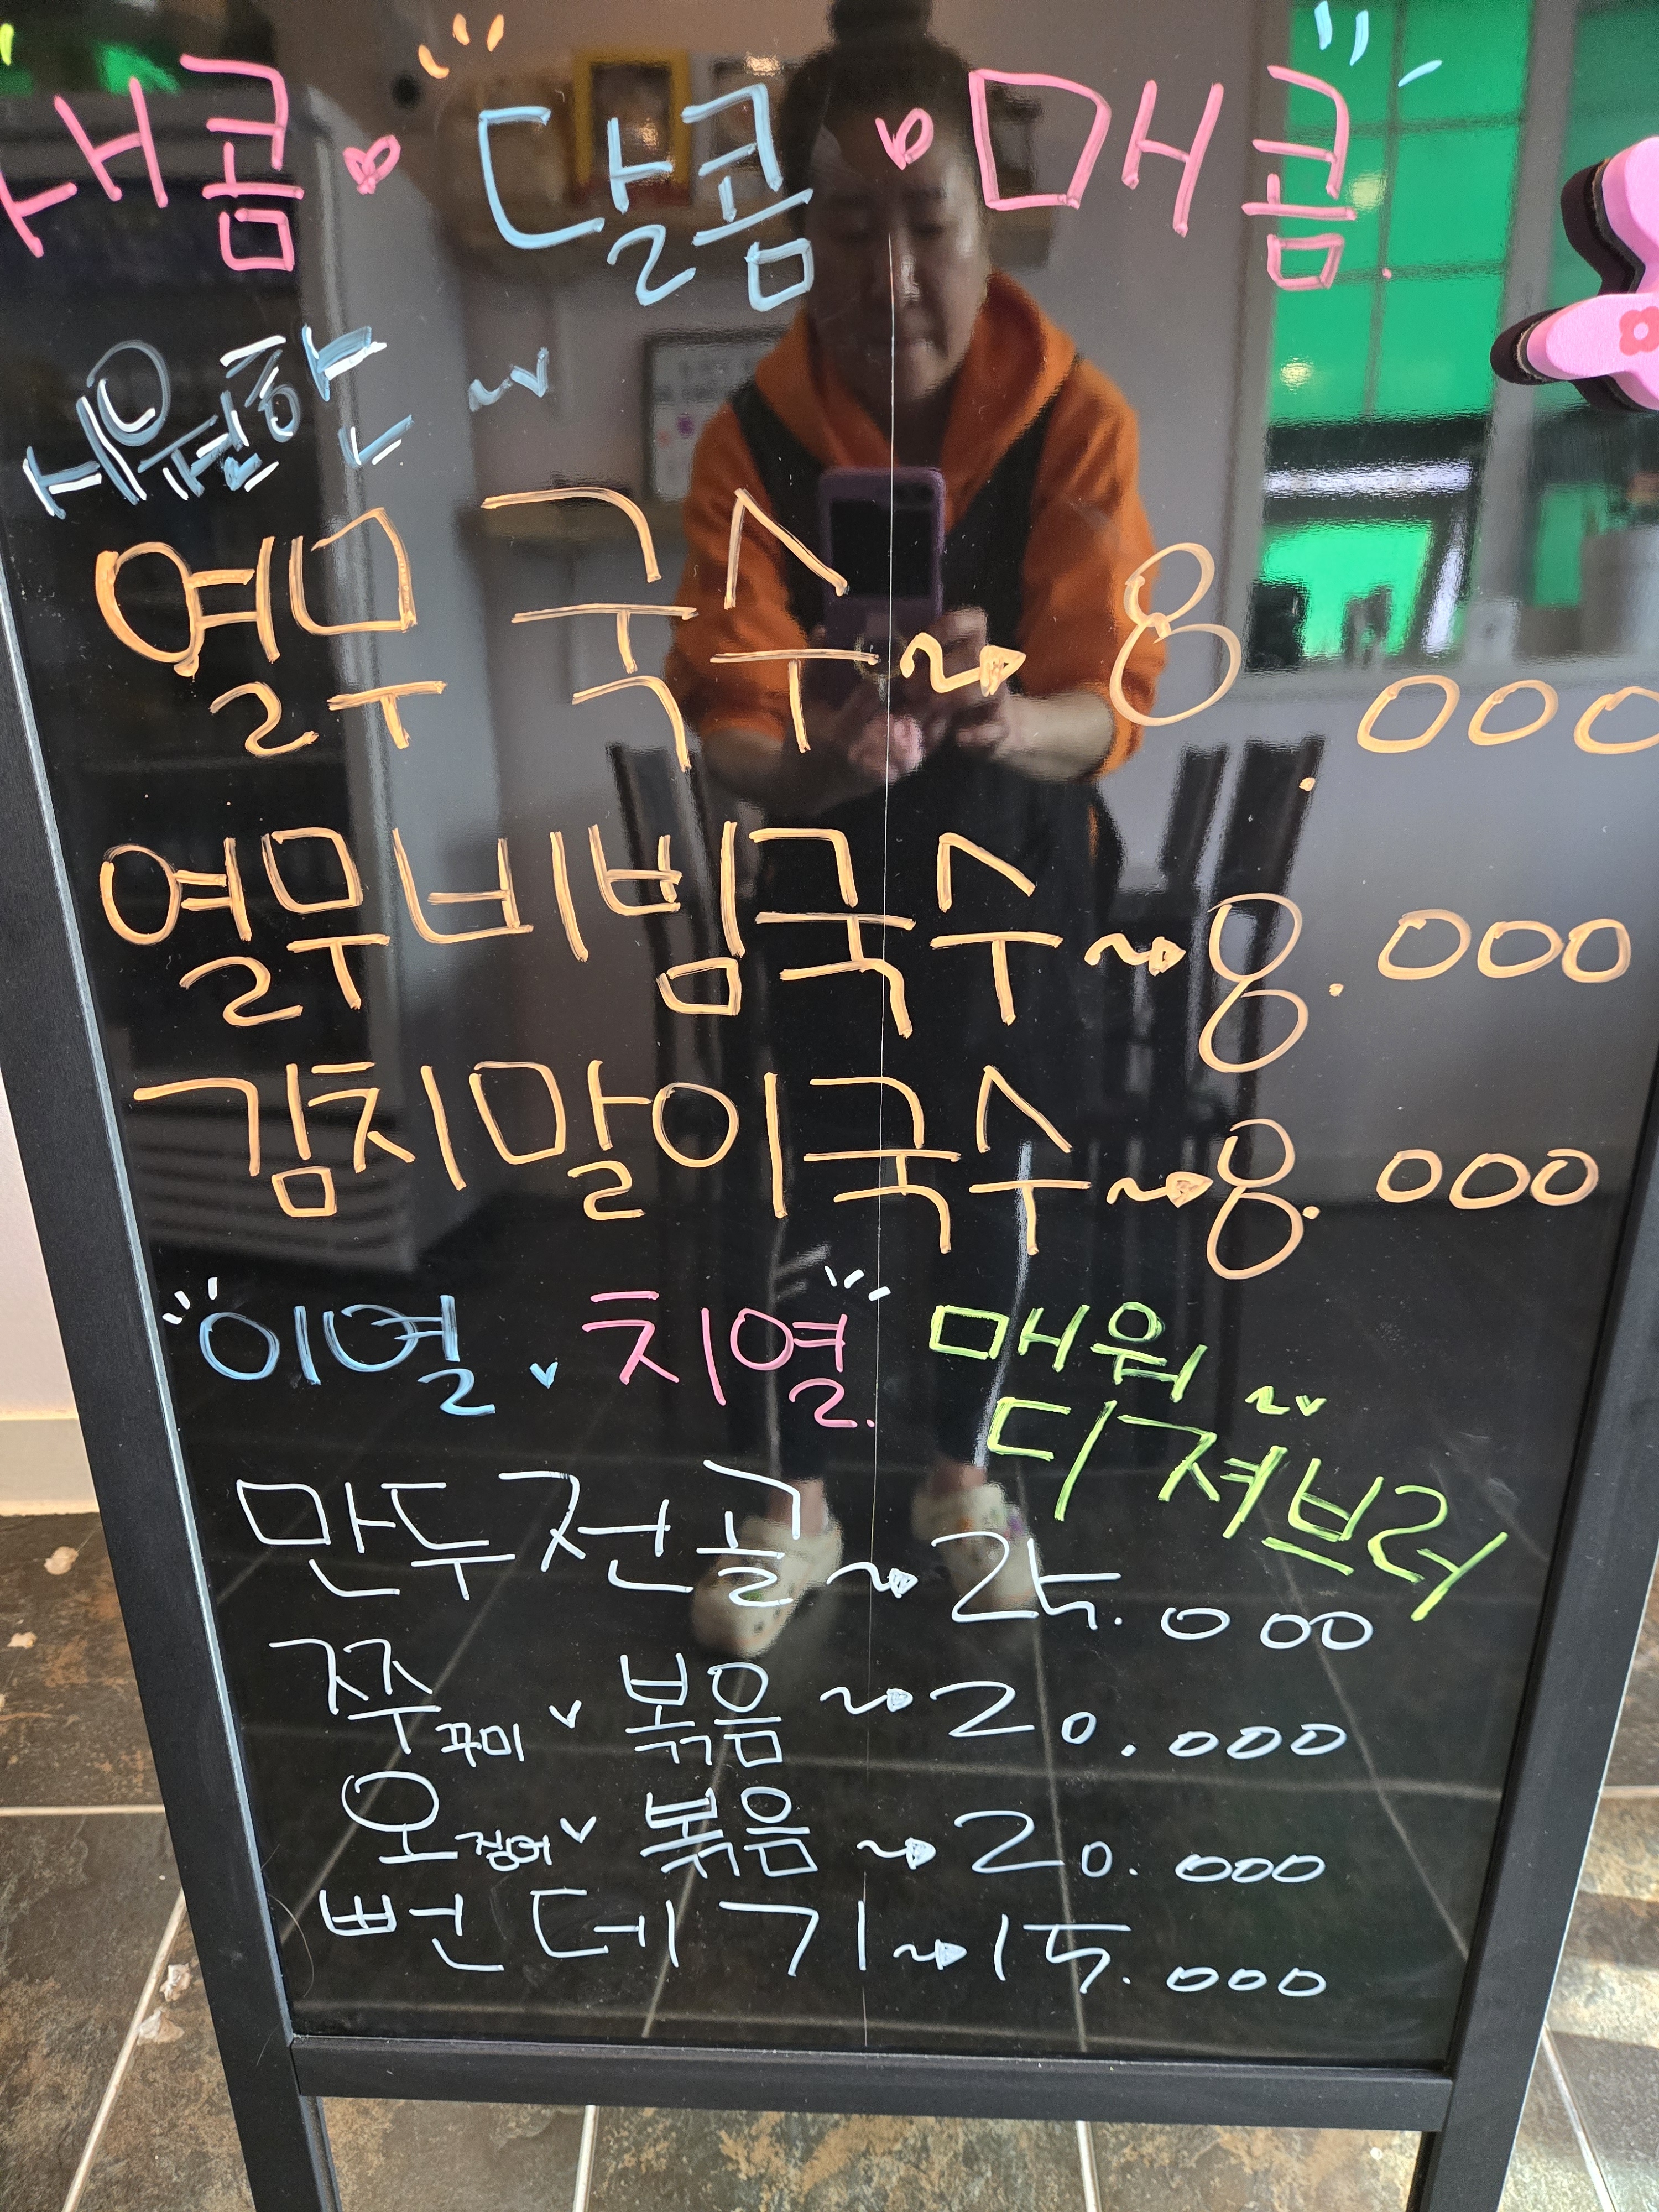 새콤 달콤 매콤
시원한 ~
열무 국수 ~ 8.000
열무비빔국수 ~ 8.000
김치말이국수 ~ 8.000
이열 치열 매워 ~
디져브러
만두전골 ~ 25.000
쭈꾸미 볶음 ~ 20.000
오징어 볶음 ~ 20.000
뻔데기 ~ 15.000